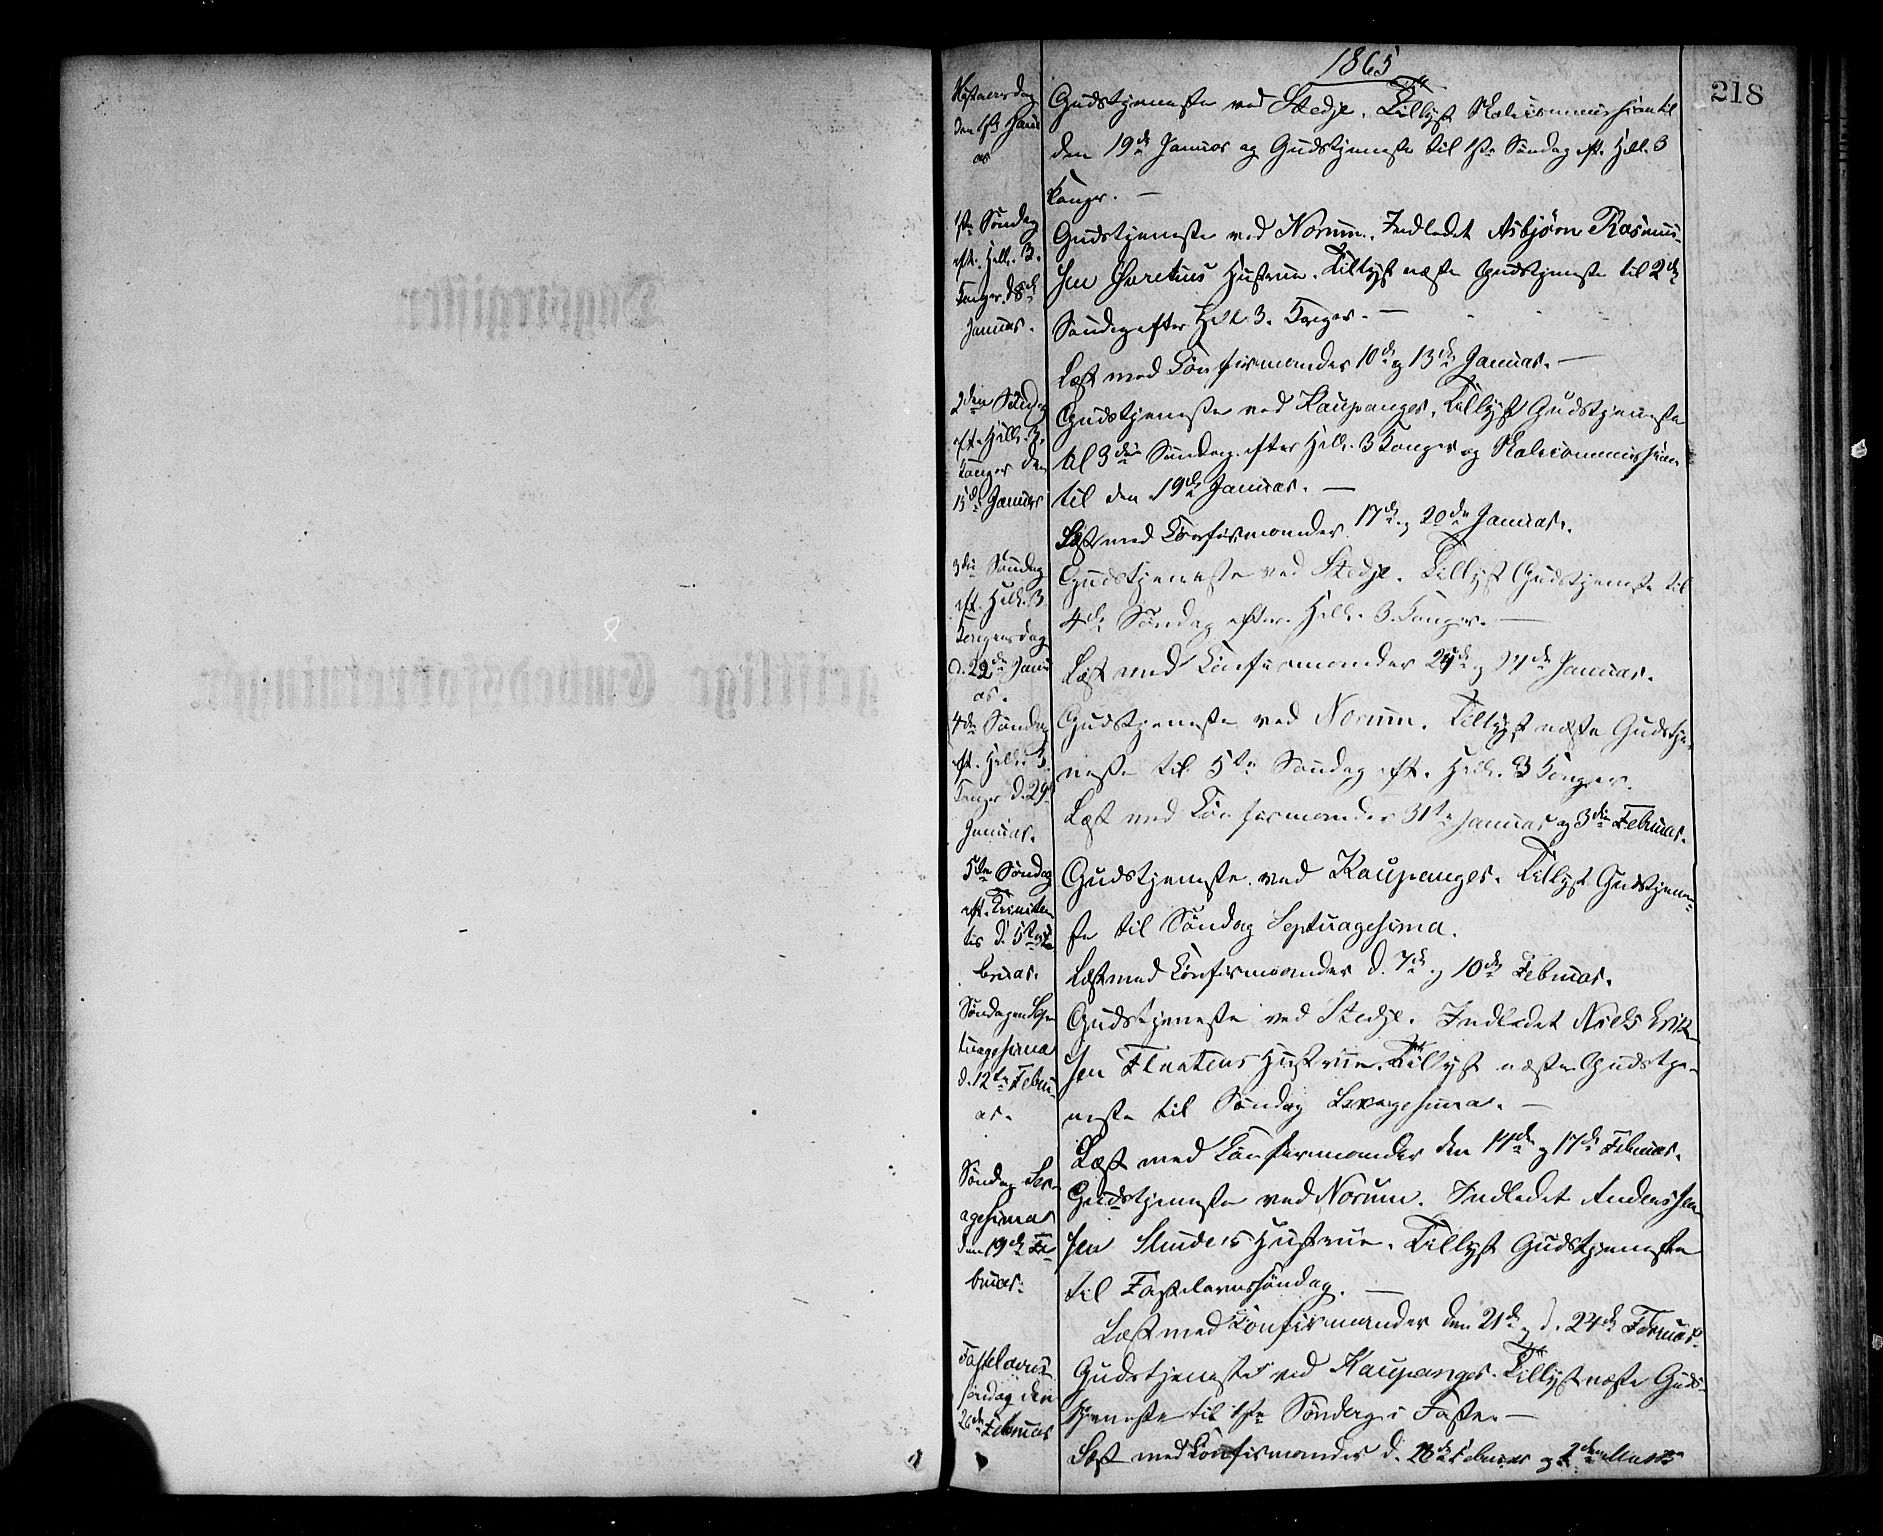 1865
218
Nytaarsdag
den 1ste Janu
ar
Gudstjeneste ved Stedje. Tillyst Skolecommission til
den 19de Januar og Gudstjeneste til 1ste Søndag eft. Hell. 3
Konger. —
1ste Søndag
eft. Hell. 3
Konger d. 8de
Januar.
Gudstjeneste ved Norum. Indledet Asbjørn Rasmus-
sen Hustrue. Tillyst næste Gudstjeneste til 2den
Søndag efter Hell. 3 Konger. —
Læst med Confirmander 10de og 13de Januar. —
2den Søndag
eft. Hell. 3
Konger den
15de Januar
Gudstjeneste ved Kaupanger. Tillyst Gudstjeneste
til 3die Søndag efter Hell. 3 Konger og Skolecommission
til den 19de Januar. —
Læst med Confirmander 17de og 20de Januar.
3die Søndag
eft. Hell. 3
Kongersdag
d. 22de Janu
ar.
Gudstjeneste ved Stedje. Tillyst Gudstjeneste til
4de Søndag efter Hell. 3 Konger. —
Læst med Confirmander 24de og 27de Januar.
4de Søndag
eft. Hell. 3
Konger d. 29de
Januar.
Gudstjeneste ved Norum. Tillyst næste Gudstje-
neste til 5te Søndag eft. Hell. 3 Konger.
Læst med Confirmander 31te Januar og 3die Februar.
5te Søndag
eft. Trinita
tis d. 5te Fe
bruar.
Gudstjeneste ved Kaupanger. Tillyst Gudstjene-
ste til Søndag Septuagesima.
Læst med Confirmander d. 7de og 10de Februar.
Søndagen Sep
tuagesima
d. 12te Febru-
ar.
Gudstjeneste ved Stedje. Indledet Niels Erik
sen Hustrue. Tillyst næste Gudstje-
neste til Søndag Sexagesima. —
Læst med Confirmander den 14de og 17de Februar.
Søndag Sex-
agesima
den 19de Fe-
bruar.
Gudstjeneste ved Norum. Indledet
sen Hustrue. Tillyst Gudstjeneste
til Fastelavnssøndag. —
Læst med Confirmander den 21de og d. 24de Februar
Fastelavns
søndag den
26de Februar
Gudstjeneste ved Kaupanger. Tillyst næste Guds-
tjeneste til 1ste Søndag i Faste. —
Læst med Confirmander d. 28de Februar og 2den Marts
Dagsregister
geistlige Embedsforretninger.